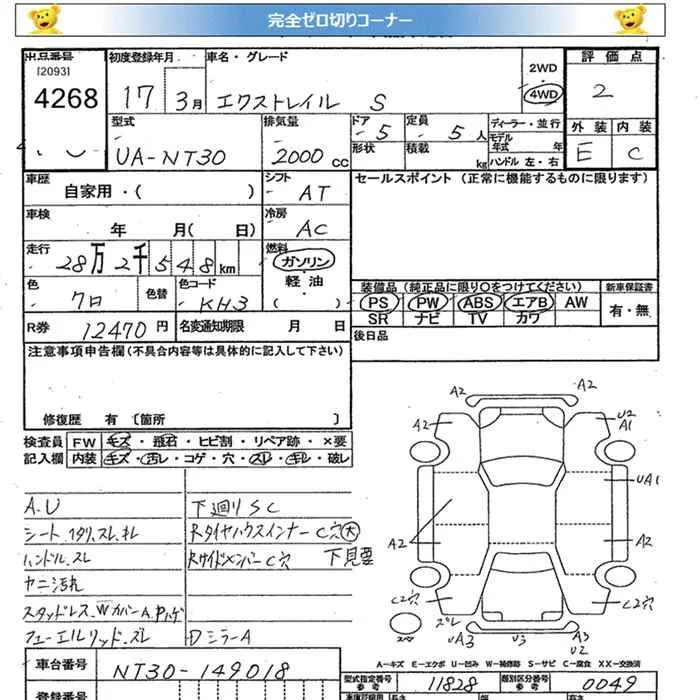 完全ゼロ切りコーナー
出品番号 初度登録年月 車名・グレード 評価点
[2093] 2WD
4268 17 3月 エクストレイル S 4WD 2
型式 排気量 ドア 定員 ディーラー・並行 外装 内装
- 5 - 5人 モデル年式 年
UA-NT30 2000cc 形状 積載 kg ハンドル 左・右 E C
車歴 シフト セールスポイント (正常に機能するものに限ります)
自家用・( ) AT
車検 冷房
年 月( 日) AC
走行 燃料
28万2千548km ガソリン
色 色替 色コード 軽油 装備品 (純正品に限り○をつけてください) 新車保証書
クロ KH3 ( ) PS PW ABS エアB AW 有・無
SR ナビ TV カワ
R券 12470円 名変通知期限 月 日 後日品
注意事項申告欄 (不具合内容等は具体的に記入して下さい)
修復歴 有 〔箇所 〕
検査員 FW キズ・飛石・ヒビ割・リペア跡・×要
記入欄 内装 キズ・汚レ・コゲ・穴・スレ・キレ・破レ
A.U 下廻りSC
シート.ヘタリ.スレ.キレ RタイヤハウスインナーC穴 大
ハンドル.スレ RサイドメンバーC穴 下見要
ヤニ汚れ
スタッドレス.WカバーA.Pハゲ
フューエルリッド.ズレ DミラーA
A2 A2
A2 U2
A1
UA1
A2 A2
C2穴 C2穴
スペア ズレ
UA3 U3 A3
U2
A－キズ E－エクボ U－凹み W－補修跡 S－サビ C－腐食 XX－交換済
車台番号 NT30-149018 型式指定番号 参考 11828 類別区分番号 参考 0049
登録番号